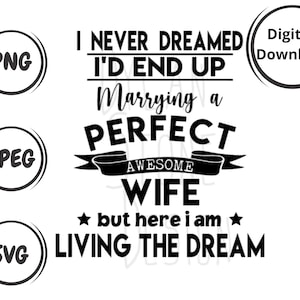 I NEVER DREAMED
I'D END UP
Marrying a
PERFECT
AWESOME
WIFE
★ but here i am ★
LIVING THE DREAM
PNG
JPEG
SVG
Digit
Downl